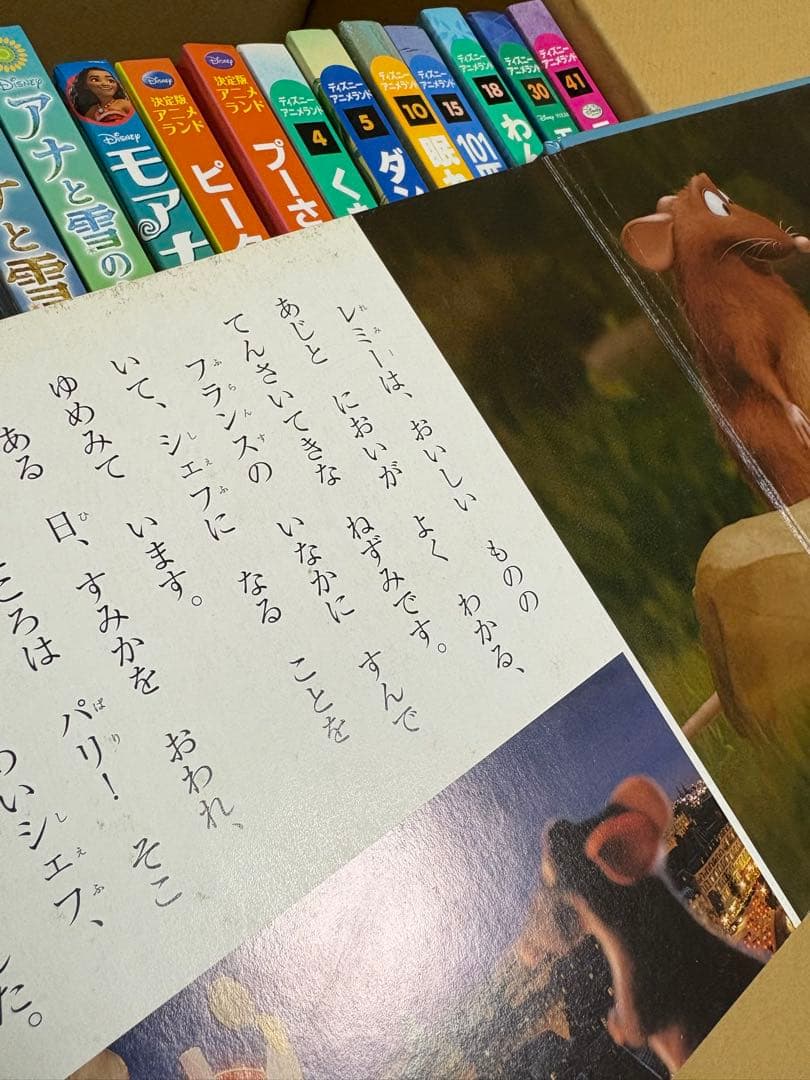 ナと雪
DISNEY
アナと雪の
Disney
モアナ
Disney
決定版
アニメ
ランド
ピー
Disney
決定版
アニメ
ランド
プーさ
ディズニー
アニメランド
4
く
ディズニー
アニメランド
5
ダン
ディズニー
アニメランド
10
眠
ディズニー
アニメランド
15
101
ディズニー
アニメランド
18
わん
ディズニー
アニメランド
30
Disney PIXAR
ディズニー
アニメランド
41
レミーは、おいしい ものの
あじと においが よく わかる、
てんさいてきな ねずみです。
フランスの いなかに すんで
いて、シェフに なる ことを
ゆめみて います。
ある 日、すみかを おわれ、
ころは パリ! そこ
いシェフ、
た。